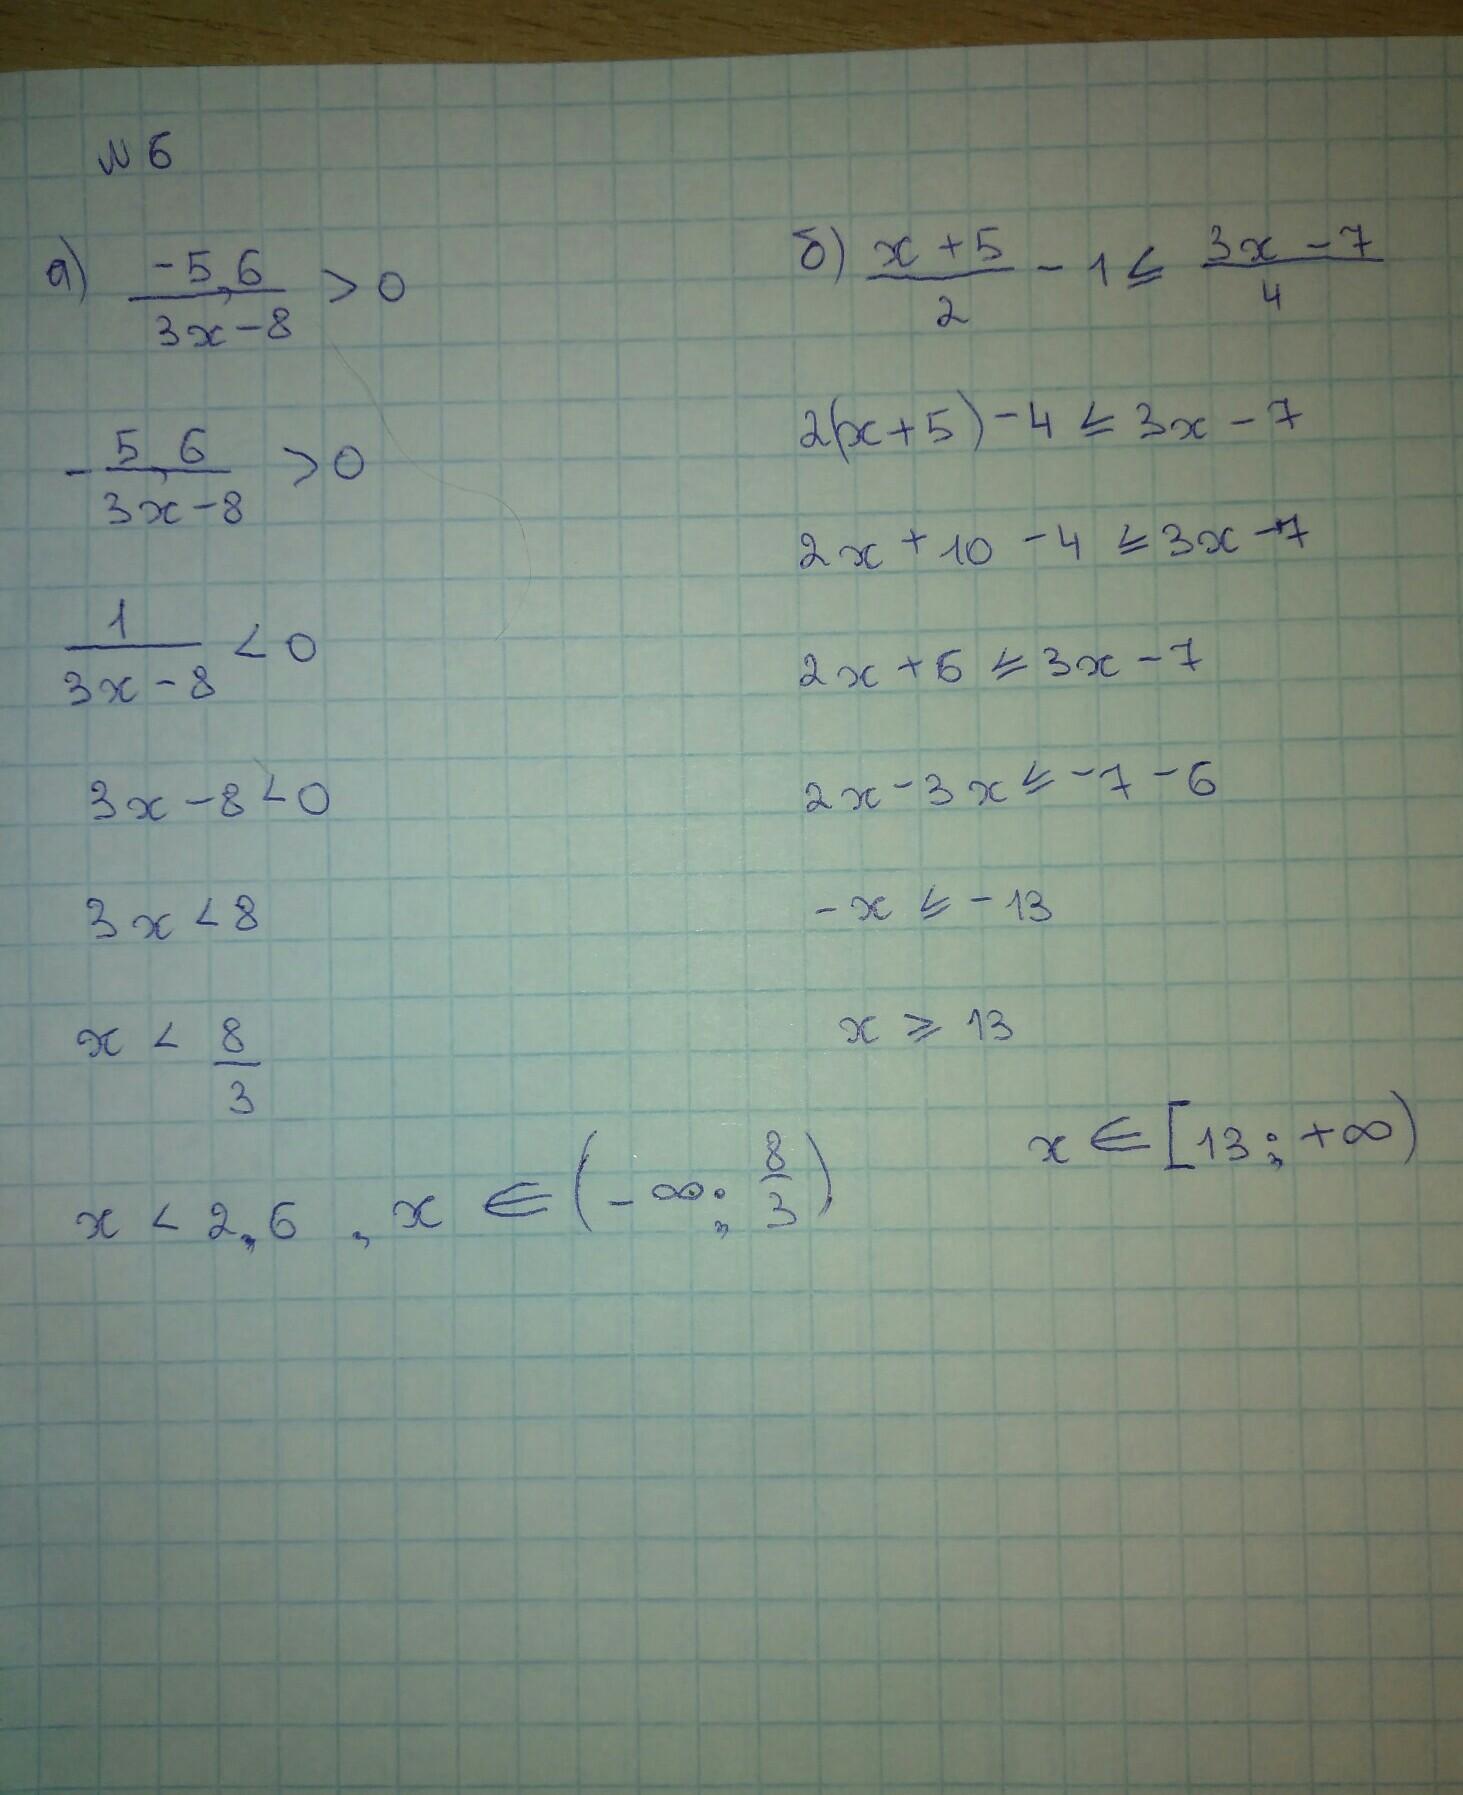 № 6
а) -5,6/(3x-8) > 0
-5,6/(3x-8) > 0
1/(3x-8) < 0
3x-8<0
3x<8
x < 8/3
x < 2,6 , x ∈ (-∞; 8/3)
б) (x+5)/2 - 1 ≤ (3x-7)/4
2(x+5)-4 ≤ 3x-7
2x+10-4 ≤ 3x-7
2x+6 ≤ 3x-7
2x-3x ≤ -7-6
-x ≤ -13
x ≥ 13
x ∈ [13; +∞)